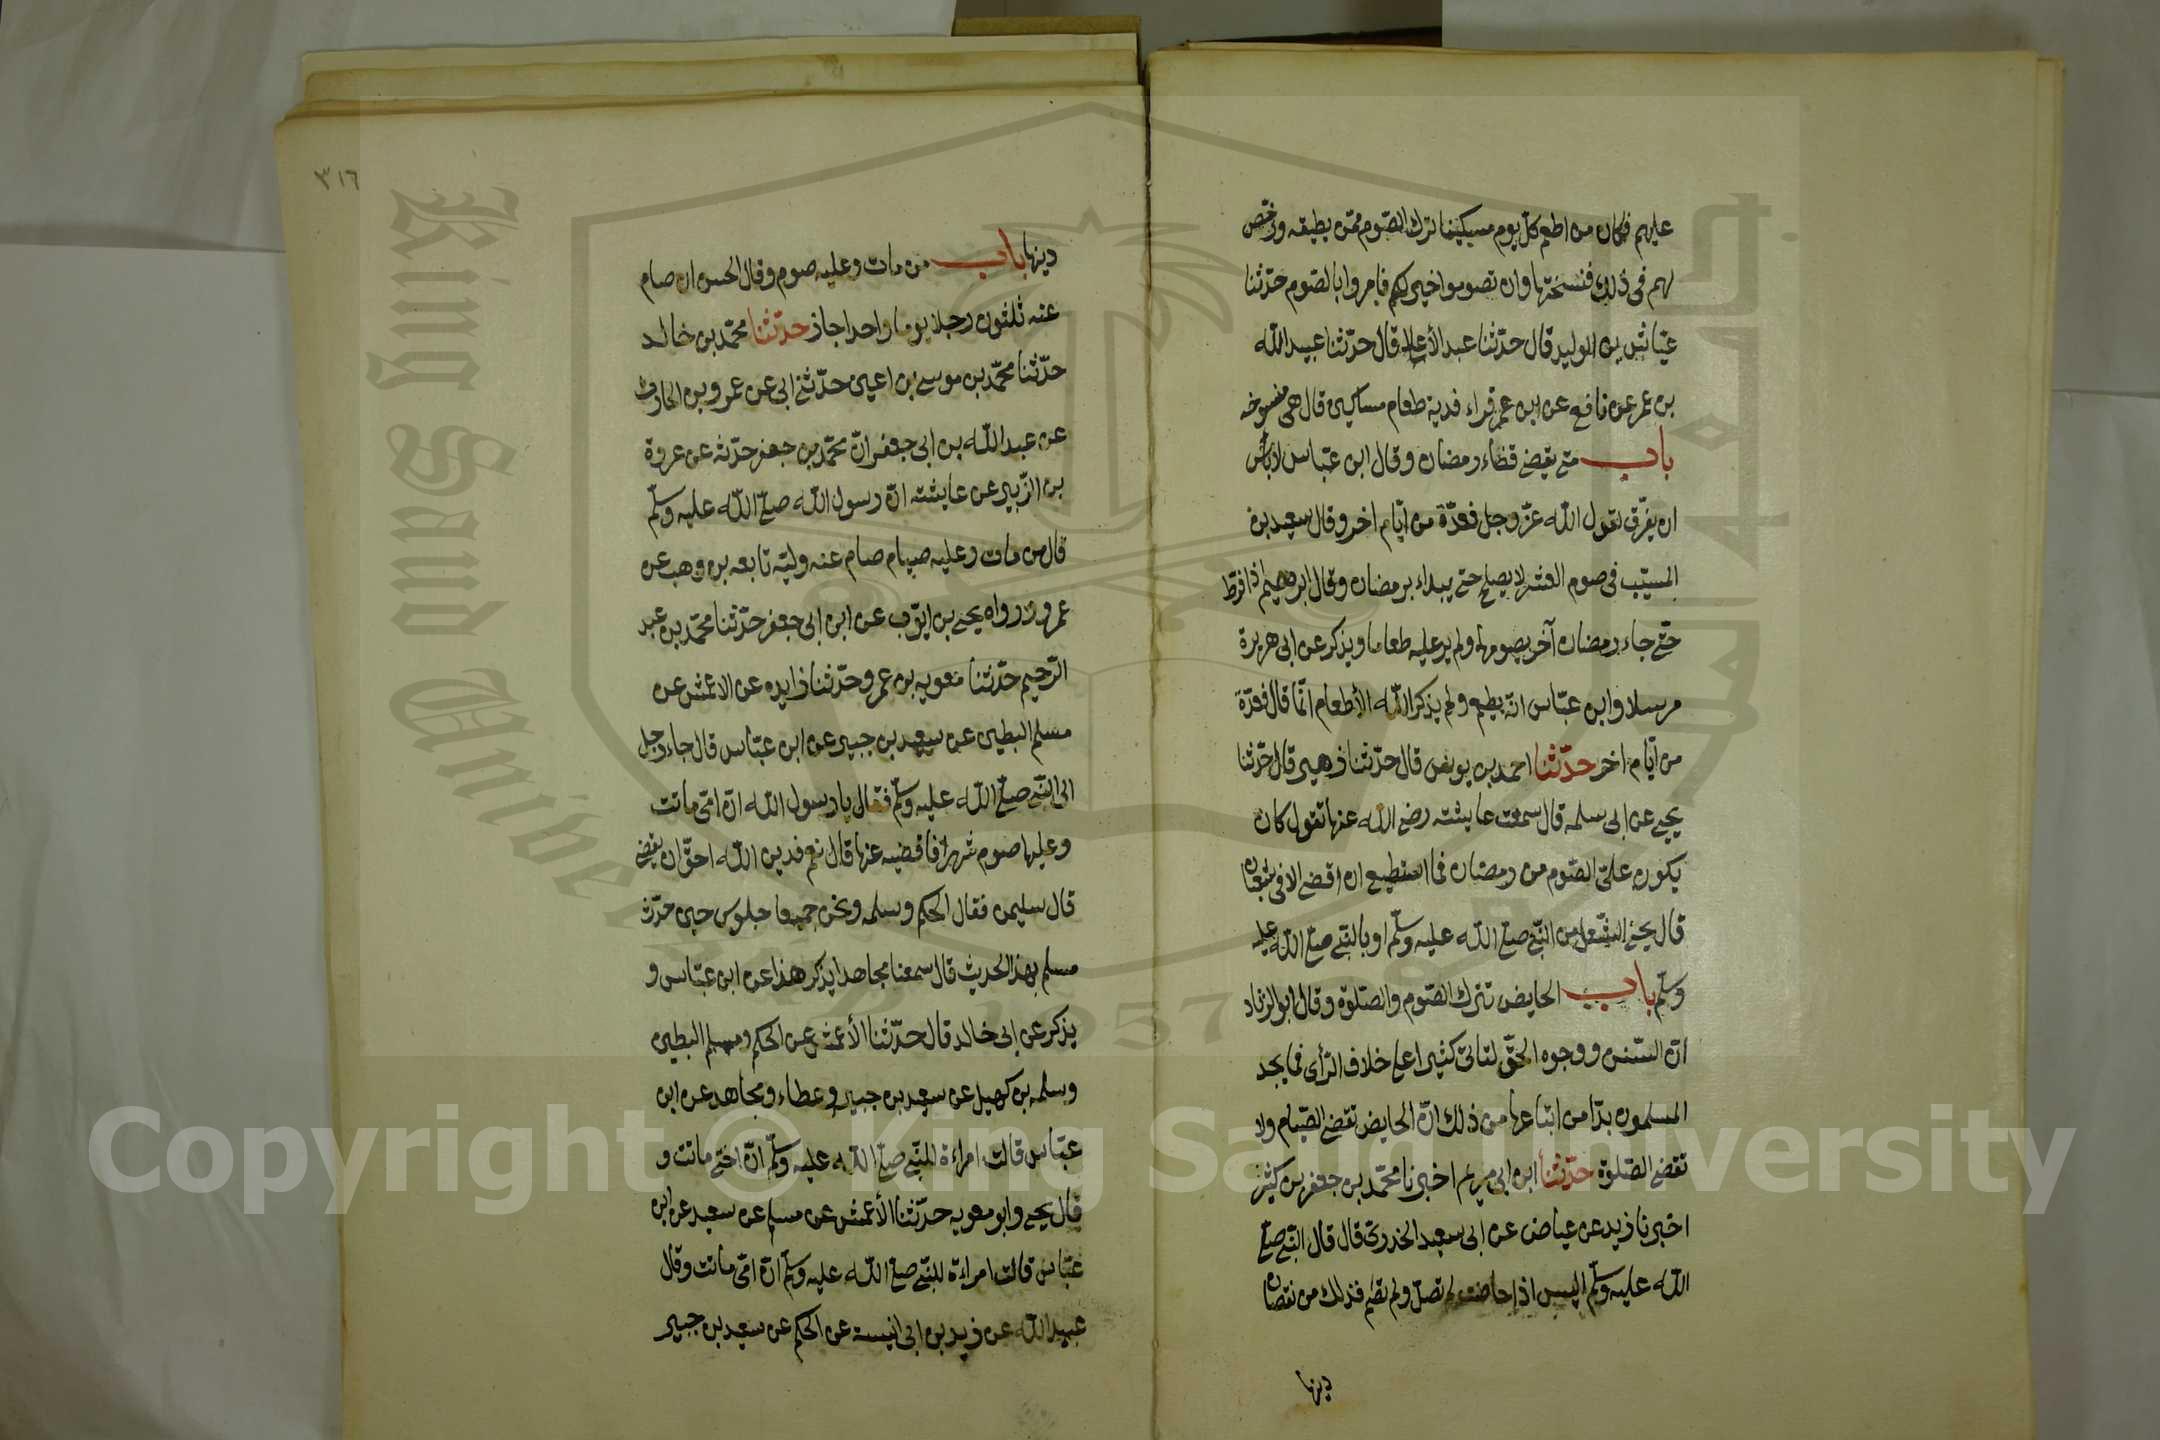 عليهم فكان من اطعم كلّ يوم مسكينا ترك الصّوم ممّن يطيقه ورخّص
لهم فى ذلك فنسختها وان تصوموا خير لكم فامروا بالصّوم حدّثنا
عيّاش بن الوليد قال حدّثنا عبد الأعلا قال حدّثنا عبيد الله
بن عمر عن نافع عن ابن عمر قراء فدية طعام مساكين قال هى منسوخه
باب متى يقضى قضاء رمضان وقال ابن عبّاس لاباس
ان يفرّق لقول الله عزّ وجل فعدّة من ايّام اخر وقال سعيد بن
المسيّب فى صوم العشر لا يصلح حتى يبداء برمضان وقال ابرهيم اذا فرّط
حتّى جاء رمضان آخر يصومهما ولم ير عليه طعاما ويذكر عن ابى هريرة
مرسلا وابن عبّاس انّه يطعم ولم يذكر الله الأطعام انّما قال فعدّة
من ايّام اخر حدّثنا احمد بن يونس قال حدّثنا زهير قال حدّثنا
يحيى عن ابى سلمه قال سمعت عايشه رضى الله عنها تقول كان
يكون علىّ الصّوم من رمضان فما استطيع ان اقضى الا فى شعبان
قال يحيى الشّغل من النّبى صلّى الله عليه وسلّم او بالنّبى صلّى الله عليه
وسلّم باب الحايض تترك الصّوم والصّلوة وقال ابو الزناد
انّ السّنن ووجوه الحقّ لتاتى كثيرا على خلاف الرّأى فما يجد
المسلمون بدّا من اتباعها من ذلك انّ الحايض تقضى الصّيام ولا
تقضى الصّلوة حدّثنا ابن ابى مريم اخبرنا محمّد بن جعفر بن كثير
اخبرنا زيد عن عياض عن ابى سعيد الخدرىّ قال قال النّبى صلّى
الله عليه وسلّم اليس اذا حاضت لم تصلّ ولم تصم فذلك من نقصان
دينها
٣١٦
دينها باب من مات وعليه صوم وقال الحسن ان صام
عنه ثلثون رجلا يوما واحدا جاز حدّثنا محمّد بن خالد
حدّثنا محمّد بن موسى بن اعين حدّثنى ابى عن عمرو بن الحارث
عن عبد الله بن ابى جعفر انّ محمّد بن جعفر حدّثه عن عروة
بن الزّبير عن عايشه انّ رسول الله صلّى الله عليه وسلّم
قال من مات وعليه صيام صام عنه وليّه تابعه بن وهب عن
عمرو ورواه يحيى بن ايوّب عن ابن ابى جعفر حدّثنا محمّد بن عبد
الرّحيم حدّثنا معويه بن عمرو حدّثنا زايده عن الاعمش عن
مسلم البطين عن سعيد بن جبير عن ابن عبّاس قال جاء رجل
الى النّبى صلّى الله عليه وسلّم فقال يا رسول الله انّ امّى ماتت
وعليها صوم شهر أفاقضيه عنها قال نعم فدين الله احقّ ان يقضى
قال سليمن فقال الحكم وسلمه ونحن جميعا جلوس حين حدّث
مسلم بهذا الحديث قال سمعنا مجاهدا يذكر هذا عن ابن عبّاس و
يذكر عن ابى خالد قال حدّثنا الأعمش عن الحكم ومسلم البطين
وسلمه بن كهيل عن سعيد بن جبير وعطاء ومجاهد عن ابن
عبّاس قالت امراءة للنّبى صلّى الله عليه وسلّم انّ اختى ماتت و
قال يحيى وابو معويه حدّثنا الأعمش عن مسلم عن سعيد عن ابن
عبّاس قالت امراءة للنّبى صلّى الله عليه وسلّم انّ امّى ماتت وقال
عبيد الله عن زيد بن ابى انيسه عن الحكم عن سعيد بن جبير
King Saud University
1957
Copyright © King Saud University